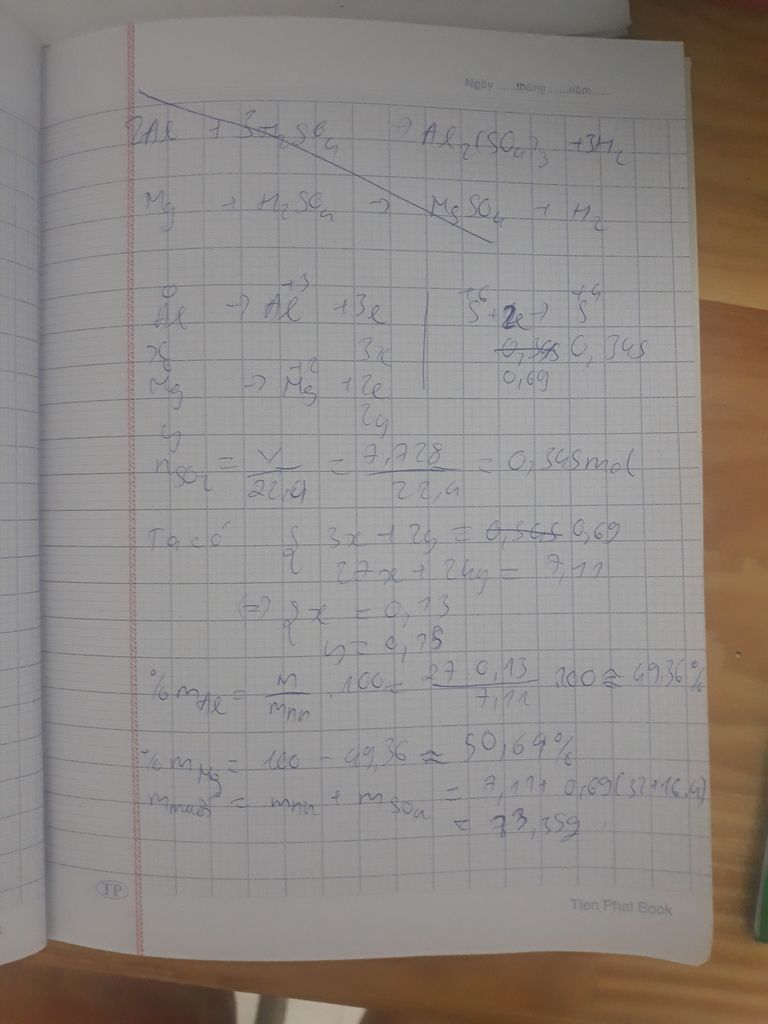 Ngày ......tháng ......năm......
2Al + 3H₂SO₄ → Al₂(SO₄)₃ + 3H₂
Mg + H₂SO₄ → MgSO₄ + H₂
Al⁰ → Al⁺³ + 3e | S⁺⁶ + 2e → S⁺⁴
x 3x 0,345 0,345
Mg → Mg⁺² + 2e 0,69
y 2y
nSO₂ = V/22,4 = 7,728/22,4 = 0,345mol
Ta có { 3x + 2y = 0,345 0,69
27x + 24y = 7,11
(=) { x = 0,13
y = 0,15
%mAl = m/mhh . 100 = 27.0,13/7,11 .100 ≈ 49,36%
%mMg = 100 - 49,36 ≈ 50,64%
mmuối = mhh + mSO₄ = 7,11 + 0,69(32+16.4)
= 73,35g
TP
Tien Phat Book